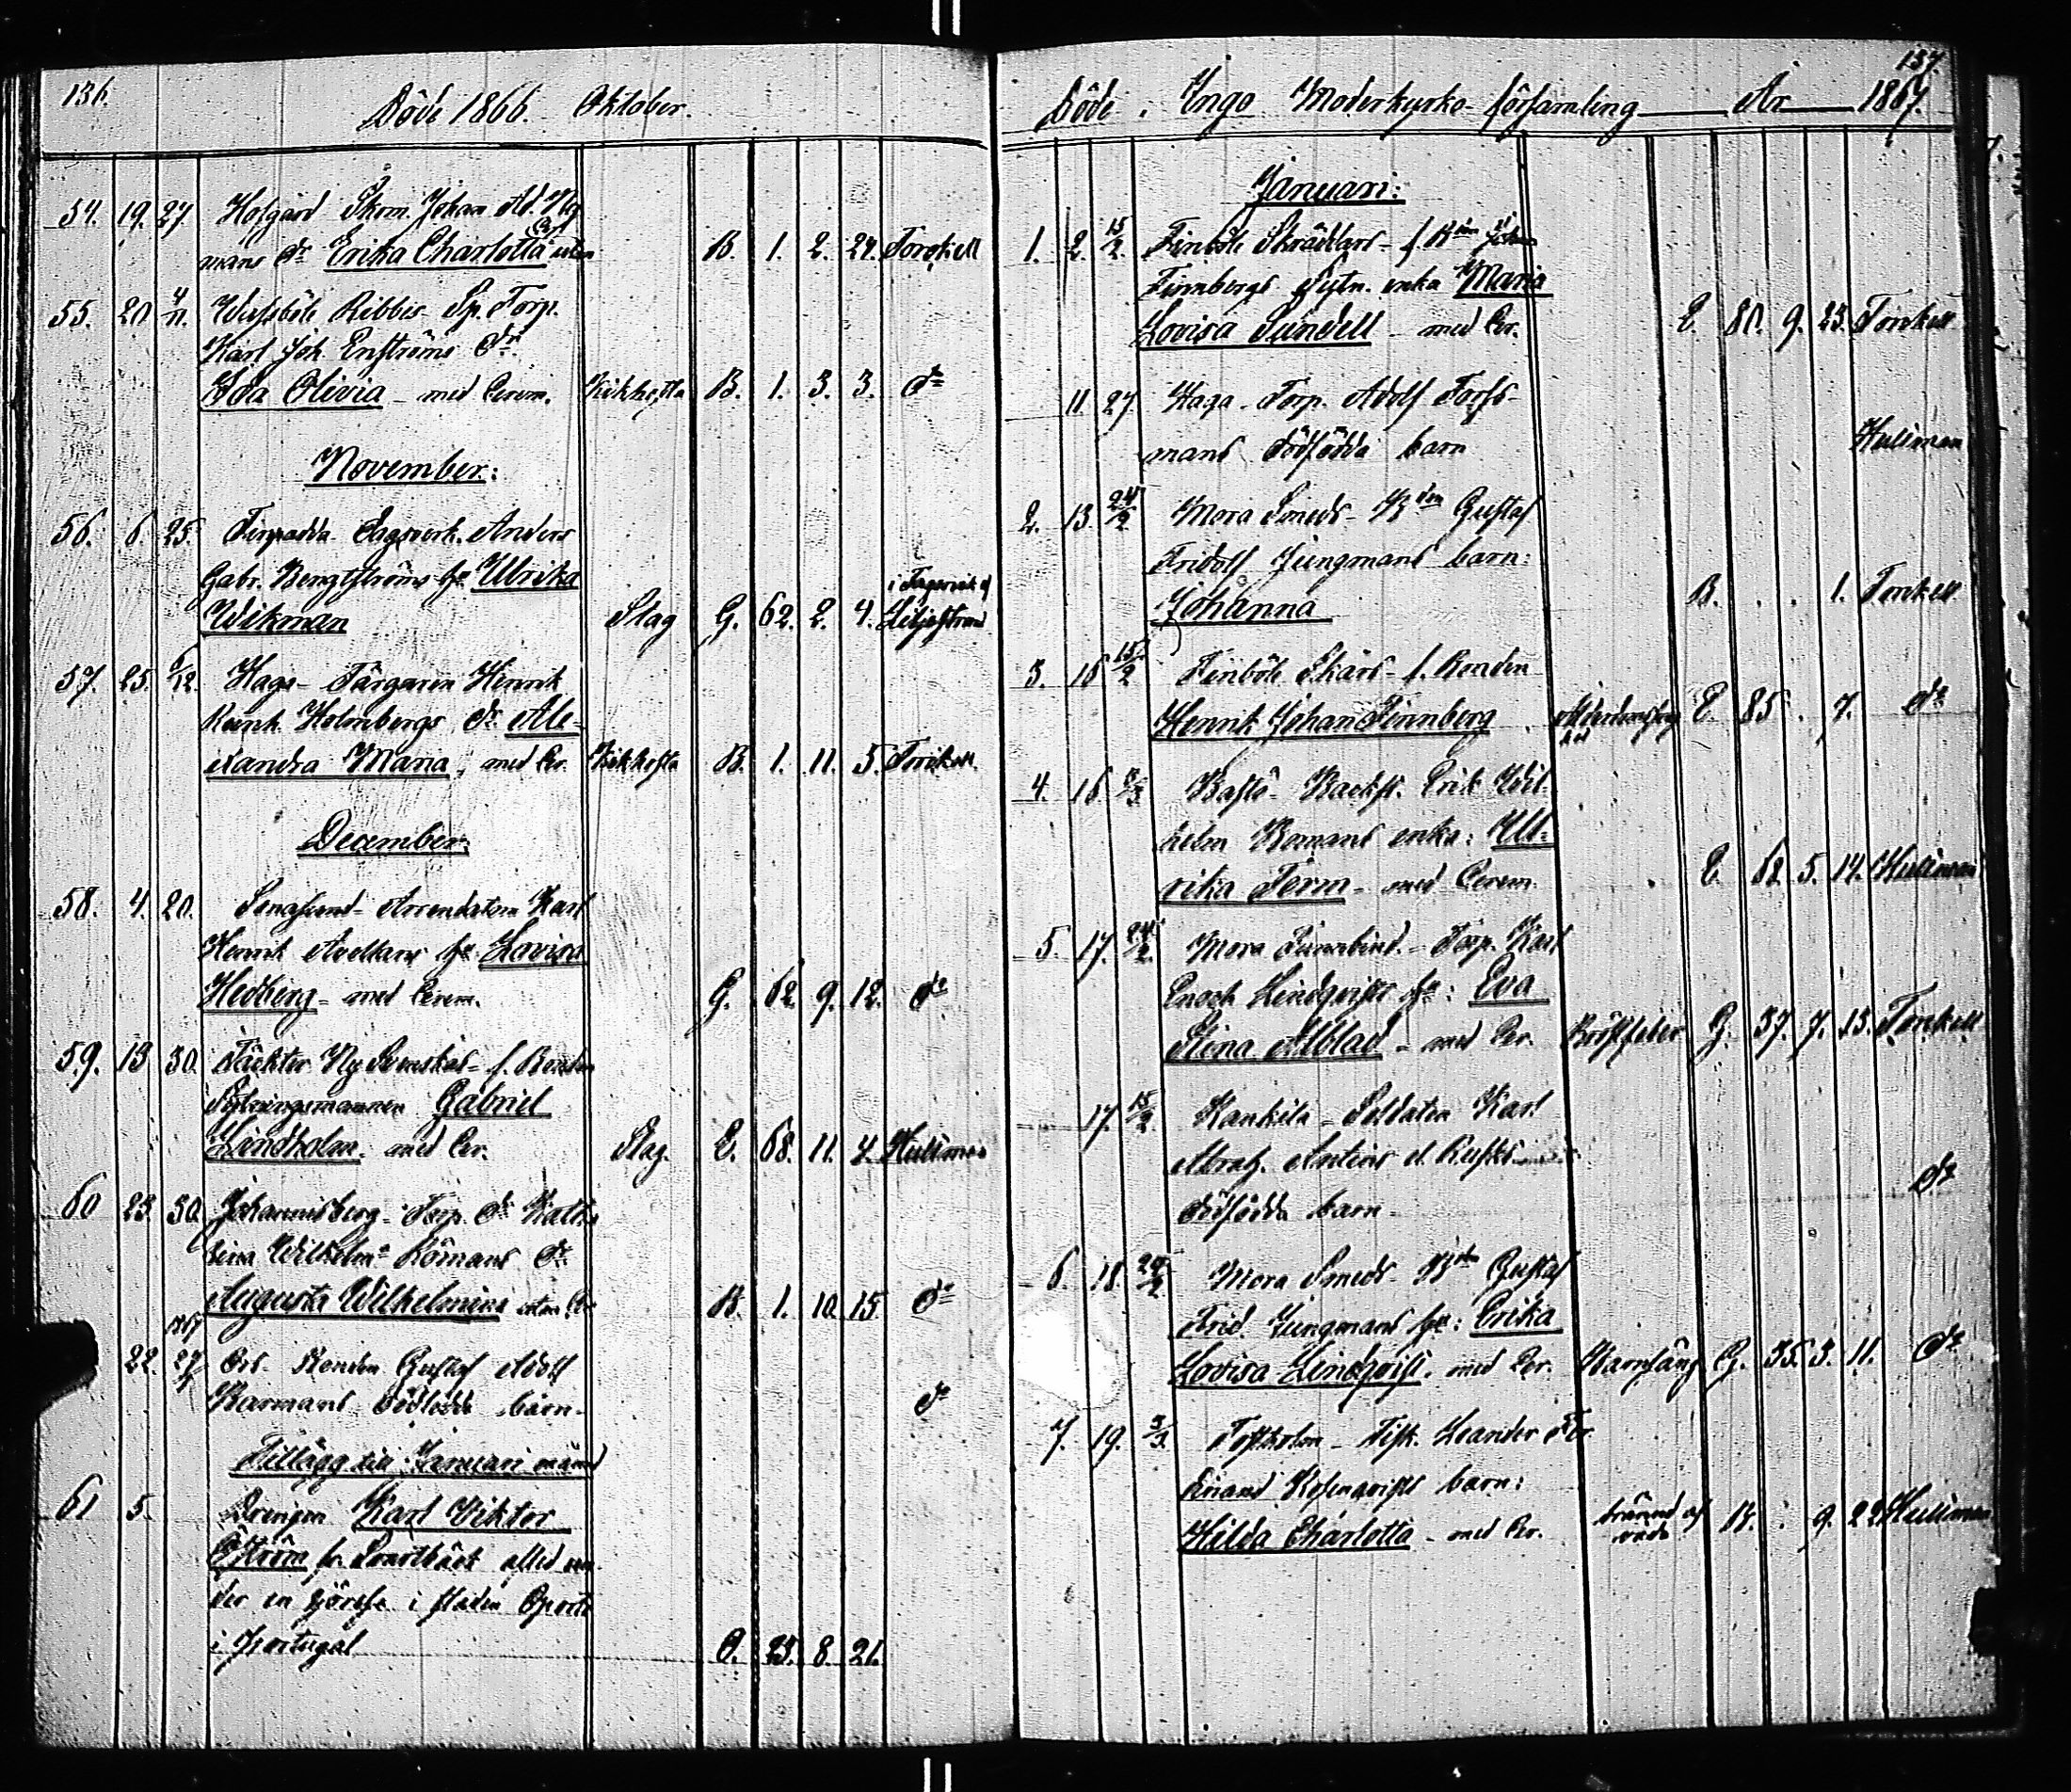 136.
Döde 1866. Oktober.
54. 19. 27. Hofgård Skom. Johan Ad. Ny
mans dr Erika Charlotta utan Cer. B. 1. 2. 24. Torckell
55. 20 4/11. Ribbis Sp. Torp.
Karl Joh. Enströms dr
Ida Olivia - med Cerem. Kikhosta B. 1. 3. 3. do
November:
56. 6. 25. Finpadda Sagverk. Anders
Gabr. Bengtströms hu Ulrika
Wikman Slag G. 62. 2. 4. i Fagervik af Liljestrand
57. 25. 6/12. Haga - Färgaren Henrik
Reinh. Holmbergs dr Ale-
xandra Maria, med Cer. Kikhosta B. 1. 11. 5. Torckell
December:
58. 4. 20. Arrendatorn Karl
Henrik Avellans hu Lovisa
Hedberg - med Cerem. G. 62. 9. 12. do
59. 13 30. Täckter Ny Svenskas - f. Bonden
Sytningsmannen Gabriel
Lindholm. med Cer. Slag. E. 68. 11. 4. Huliman
60 23. 30. Johannisberg - Torp. dr Katha
rina Wilhelma Römans dr
Augusta Wilhelmina utan Cer B. 1. 10. 15. do
22. 1867 27/1 Bonden Gustaf Adolf
Barmans dödfödda barn. do
Tillägg till Januari månad
61 5. Drengen Karl Viktor
Öström fr. Svartbäck afled un-
der en sjöresa i staden Oporto
i Portugal O. 23. 8. 21.
137.
Döde i Ingo Moderkyrko-församling År 1867.
Januari:
1. 2. 15/2. Finböle Skräddars - f. Bden Johan
Finnbergs sytn. enka Maria
Lovisa Sundell - med Cer. E. 80. 9. 23. Torckell
11. 27 Haga - Torp. Adolf Forss-
mans dödfödda barn Huliman
2. 13 24/2 Mora Smeds - Bden Gustaf
Fridolf Ljungmans barn:
Johanna B. . . 1. Torckell
3. 16 15/2 Finböle Skärs - f. Bonden
Henrik Johan Finnberg. Ålderdomssvaghet E. 85. . 7. do
4. 16. 3/3 Bastö - Backst. Erik Wil-
helm Bomans enka: Ul-
rika Term - med Cerem. E. 62. 5. 14. Huliman
5. 17. 24/2. Mora - Torp. Karl
Enoch Lindqvists hu: Eva
Stina Alblad - med Cer. Bröstfeber G. 37. 7. 13. Torckell
17. 15/2 Kankila - Soldaten Karl
dödfödda barn - do
6. 18. 24/2. Mora Smeds - Bden Gustaf
Frid. Ljungmans hu: Erika
Lovisa Lindqvist. med Cer. Barnsäng G. 35. 3. 11. do
7. 19. 3/3. Torstholm - Fisk. Leander Fer
dinand Rosenqvists barn:
Hilda Charlotta - med Cer. bränd af våda B. . 9. 22. Huliman